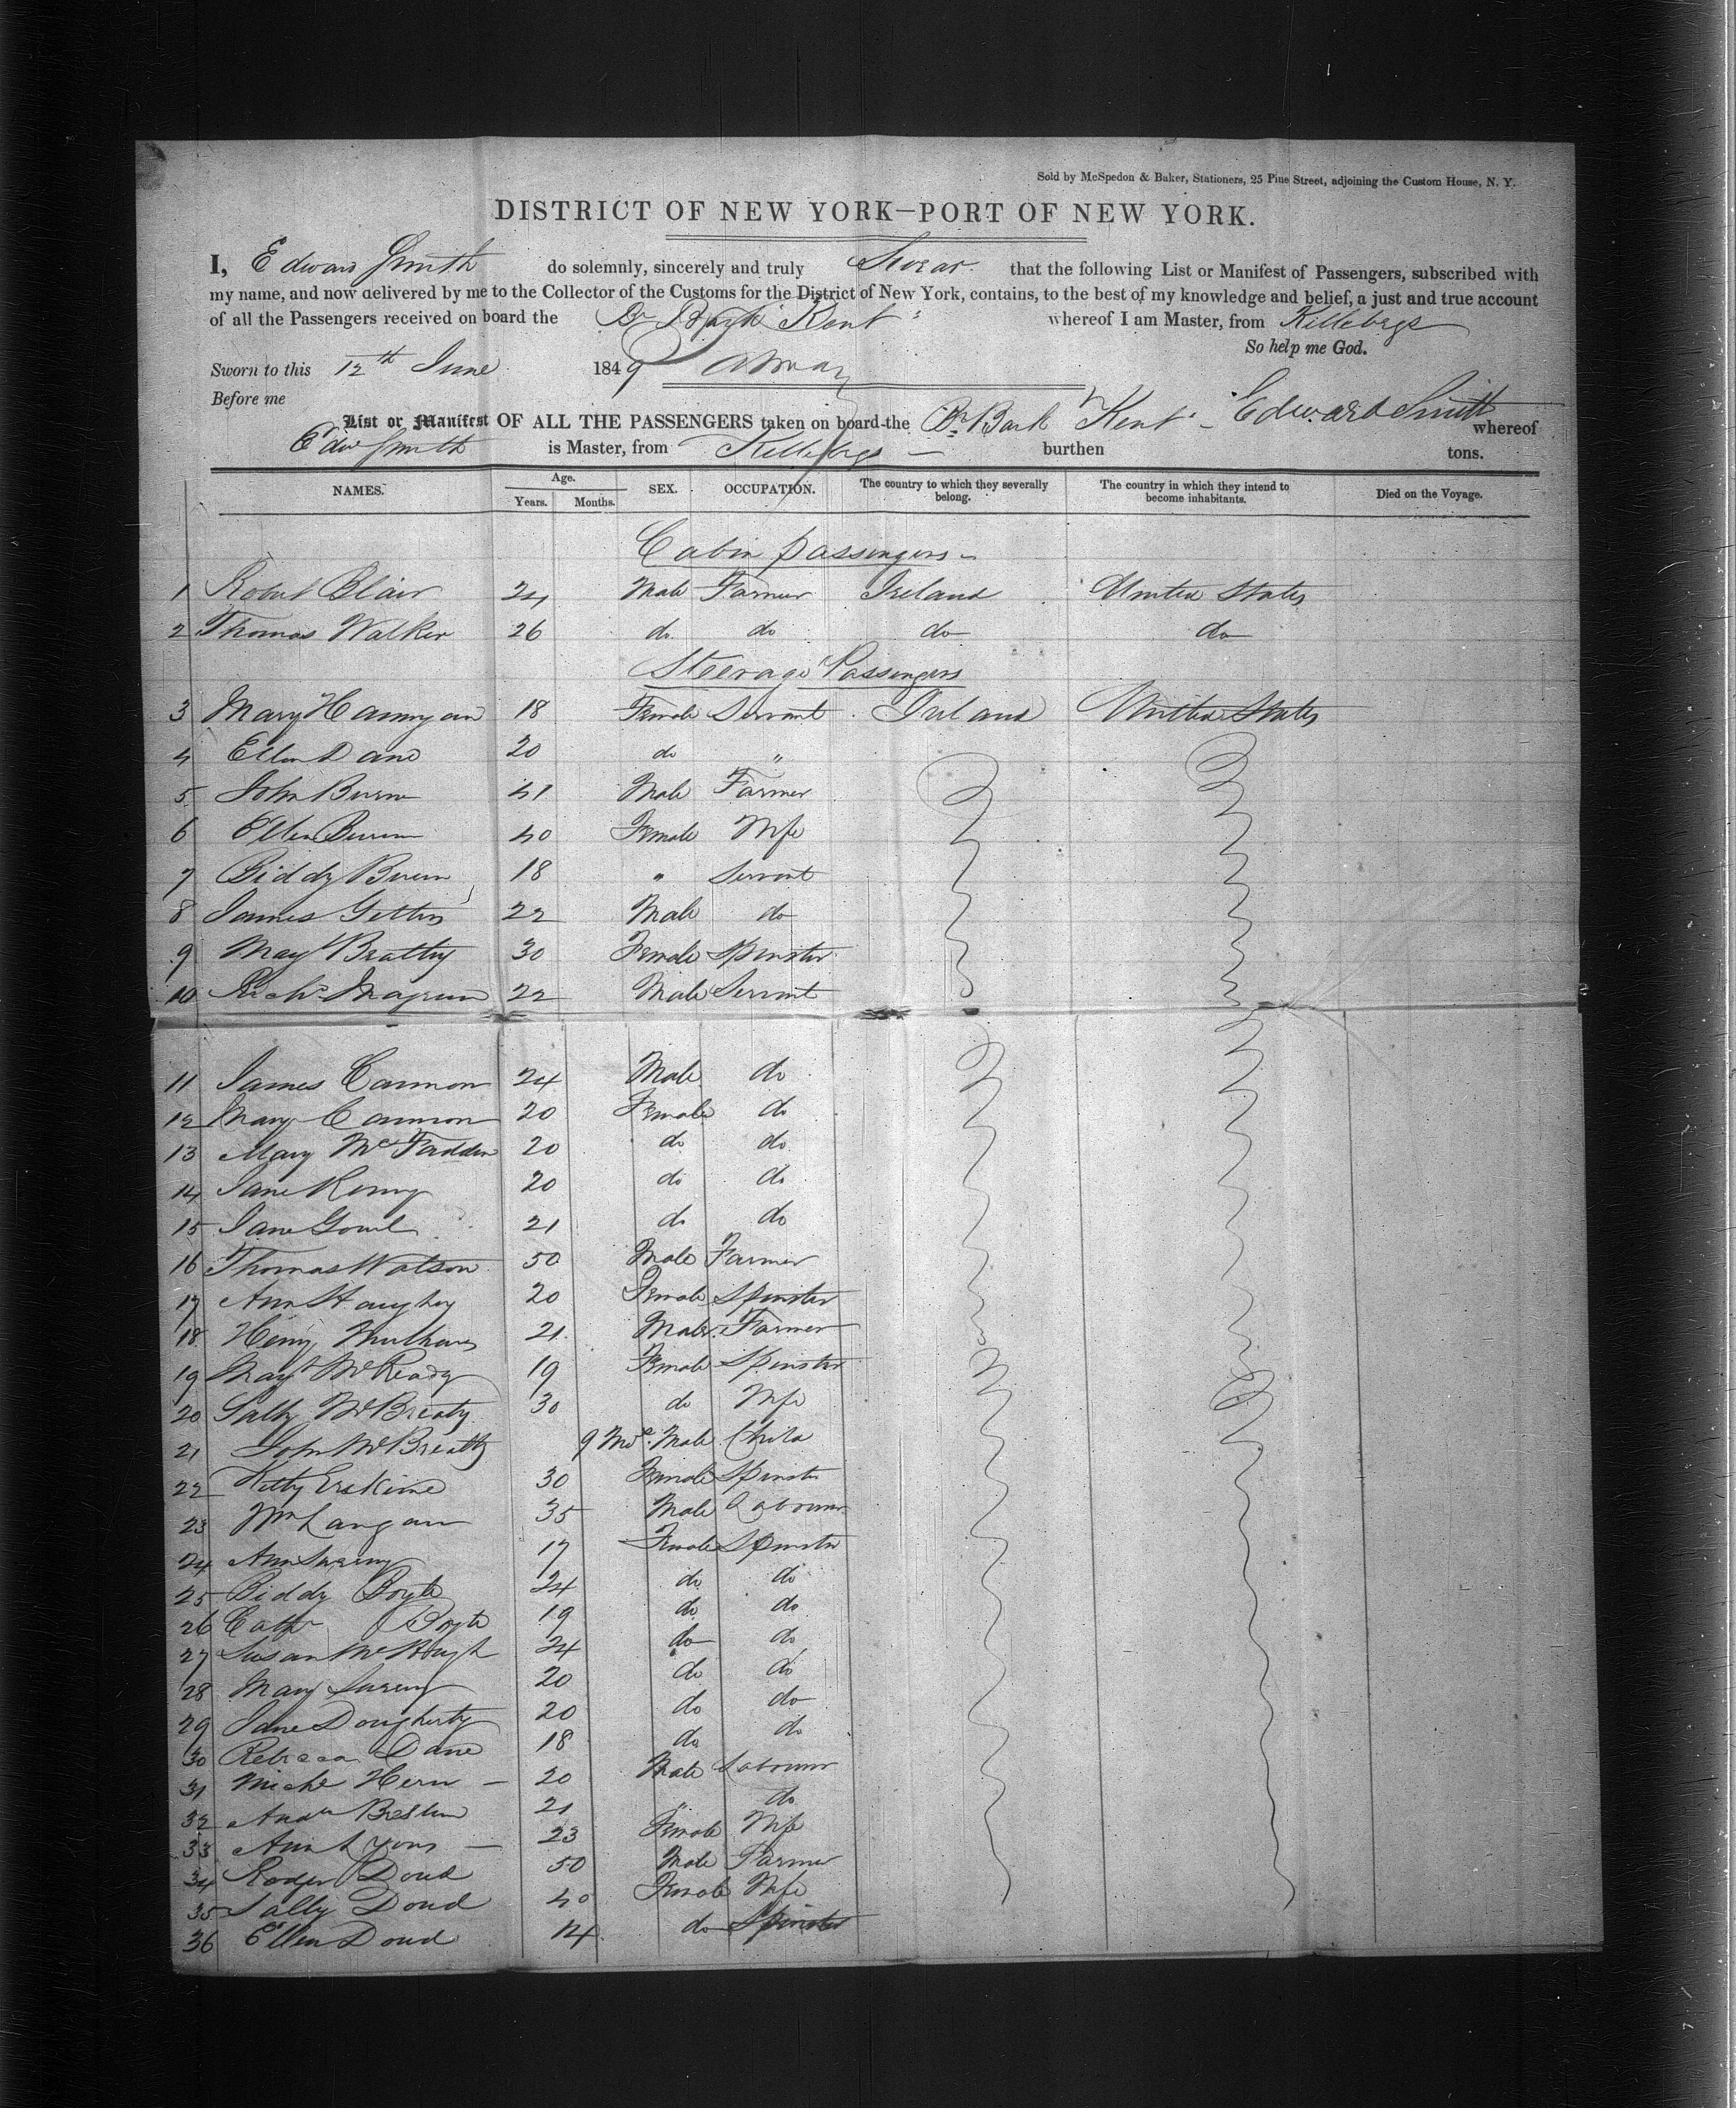 Sold by McSpedon & Baker, Stationers, 25 Pine Street, adjoining the Custom House, N. Y.
DISTRICT OF NEW YORK—PORT OF NEW YORK.
I, Edward Smith do solemnly, sincerely and truly Swear that the following List or Manifest of Passengers, subscribed with
my name, and now delivered by me to the Collector of the Customs for the District of New York, contains, to the best of my knowledge and belief, a just and true account
of all the Passengers received on board the Br Bark Kent whereof I am Master, from Killebegs
So help me God.
Sworn to this 12th June 1849
Before me
List or Manifest OF ALL THE PASSENGERS taken on board the Br Bark Kent Edward Smith whereof
Edw Smith is Master, from Killebegs burthen tons.
NAMES. Age. Years. Months. SEX. OCCUPATION. The country to which they severally belong. The country in which they intend to become inhabitants. Died on the Voyage.
Cabin passengers
1 Robert Blair 24 Male Farmer Ireland United States
2 Thomas Walker 26 do do do do
Steerage Passengers
3 Mary 18 Female Servant Ireland United States
4 Ellen Dane 20 do "
5 John Burn 41 Male Farmer
6 Ellen Burn 40 Female Wife
7 Biddy Burn 18 " Servant
8 James Gettins 22 Male do
9 Margt Bratty 30 Female Spinster
10 Richd 22 Male Servant
11 James Cannon 24 Male do
12 Mary Cannon 20 Female do
13 Mary McFadden 20 do do
14 Jane 20 do do
15 Jane 21 do do
16 Thomas Watson 50 Male Farmer
17 Ann Haughey 20 Female Spinster
18 Henry 21 Male Farmer
19 Margt McReady 19 Female Spinster
20 Sally McBreaty 30 do Wife
21 John McBreatty 9 Mos. Male Child
22 Kitty Erskine 30 Female Spinster
23 Wm Langan 35 Male Labourer
24 Ann 17 Female Spinster
25 Biddy Boyle 24 do do
26 Cathr Boyle 19 do do
27 Susan McHugh 24 do do
28 Mary 20 do do
29 Jane Dougherty 20 do do
30 Rebecca Dane 18 do do
31 Michl Hern 20 Male Labourer
32 Andw Breslin 21 " do
33 Ann Lyons 23 Female Wife
34 Rodger Doud 50 Male Farmer
35 Sally Doud 40 Female Wife
36 Ellen Doud 14 do Spinster